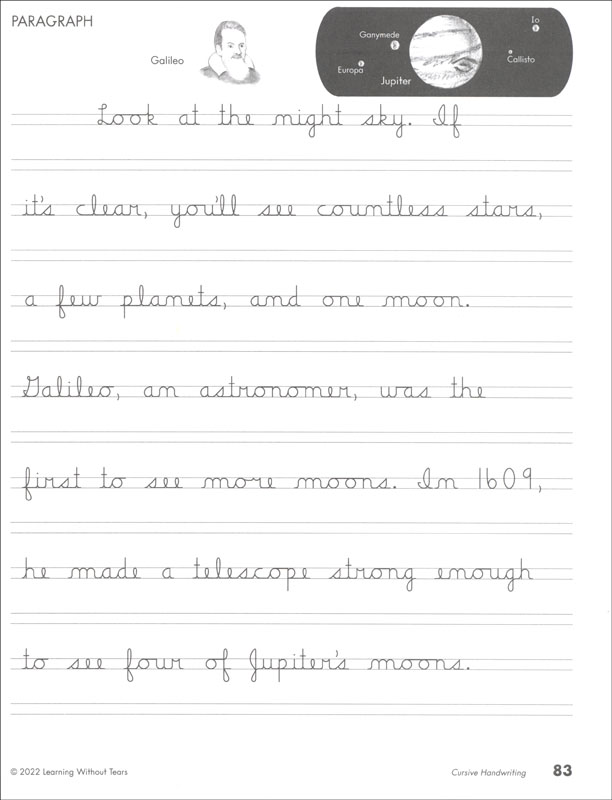 PARAGRAPH
Galileo
Ganymede
Io
Europa
Callisto
Jupiter
Look at the night sky. If
it's clear, you'll see countless stars,
a few planets, and one moon.
Galileo, an astronomer, was the
first to see more moons. In 1609,
he made a telescope strong enough
to see four of Jupiter's moons.
© 2022 Learning Without Tears
Cursive Handwriting 83